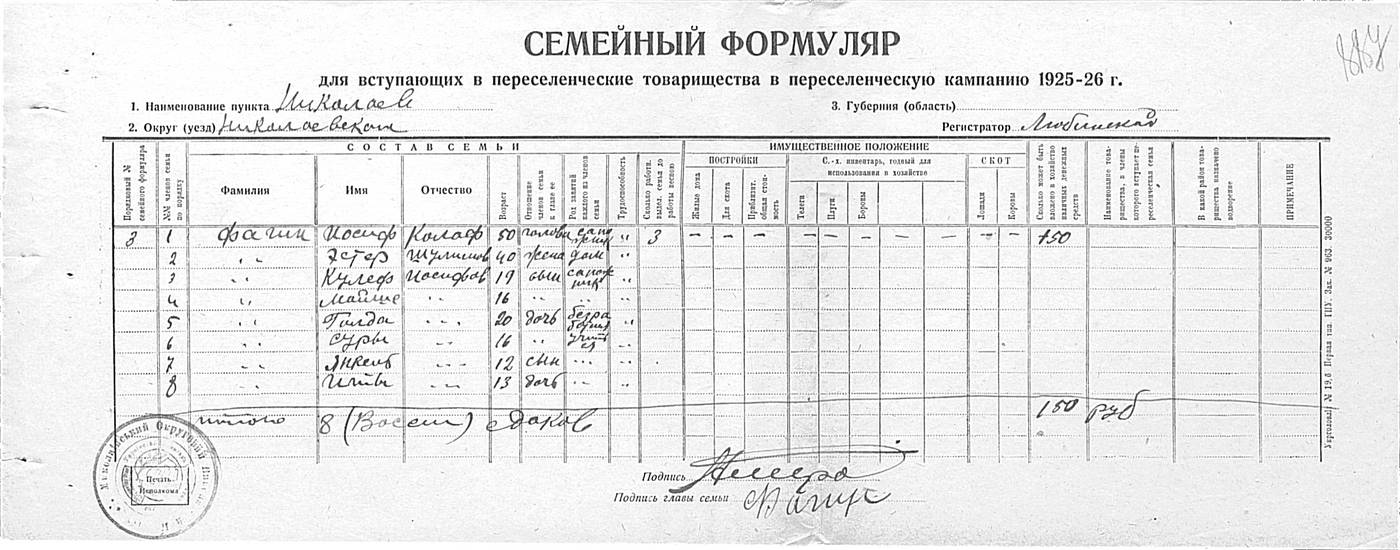 СЕМЕЙНЫЙ ФОРМУЛЯР
для вступающих в переселенческие товарищества в переселенческую кампанию 1925-26 г.
1. Наименование пункта Николаев
3. Губерния (область)
2. Округ (уезд) Николаевский
Регистратор Любинская
Порядковый № семейного формуляра
№№ членов семьи по порядку
СОСТАВ СЕМЬИ
Фамилия Имя Отчество
Возраст
Отношение членов семьи к главе ее
Род занятий каждого из членов семьи
Трудоспособность
Сколько работн. выдел. семья до работы весною
ИМУЩЕСТВЕННОЕ ПОЛОЖЕНИЕ
ПОСТРОЙКИ
Жилые дома
Для скота
Приблизит. общая стоимость
С.-х. инвентарь, годный для использования в хозяйстве
Телеги
Плуги
Бороны
СКОТ
Лошади
Коровы
Сколько может быть вложено в хозяйство наличных денежных средств
Наименование товарищества, в члены которого вступает переселенческая семья
В какой район товарищества назначено водворение
ПРИМЕЧАНИЕ
3 1 Фагин Иосиф 50 голова сапожник " 3 – – – – – – – – – – 150
2 " Эстер 40 жена дом "
3 " 19 сын сапожник "
4 " 16 " " "
5 " Голда " 20 дочь безработная "
6 " Суры " 16 " "
7 " Янкель " 12 сын " "
8 " " 13 дочь " "
итого 8 едоков 150 руб
Печать Исполкома
Подпись
Подпись главы семьи Фагин
Укрголовліт № 19.б Первая тип. ГПУ. Зак. № 663. 30000